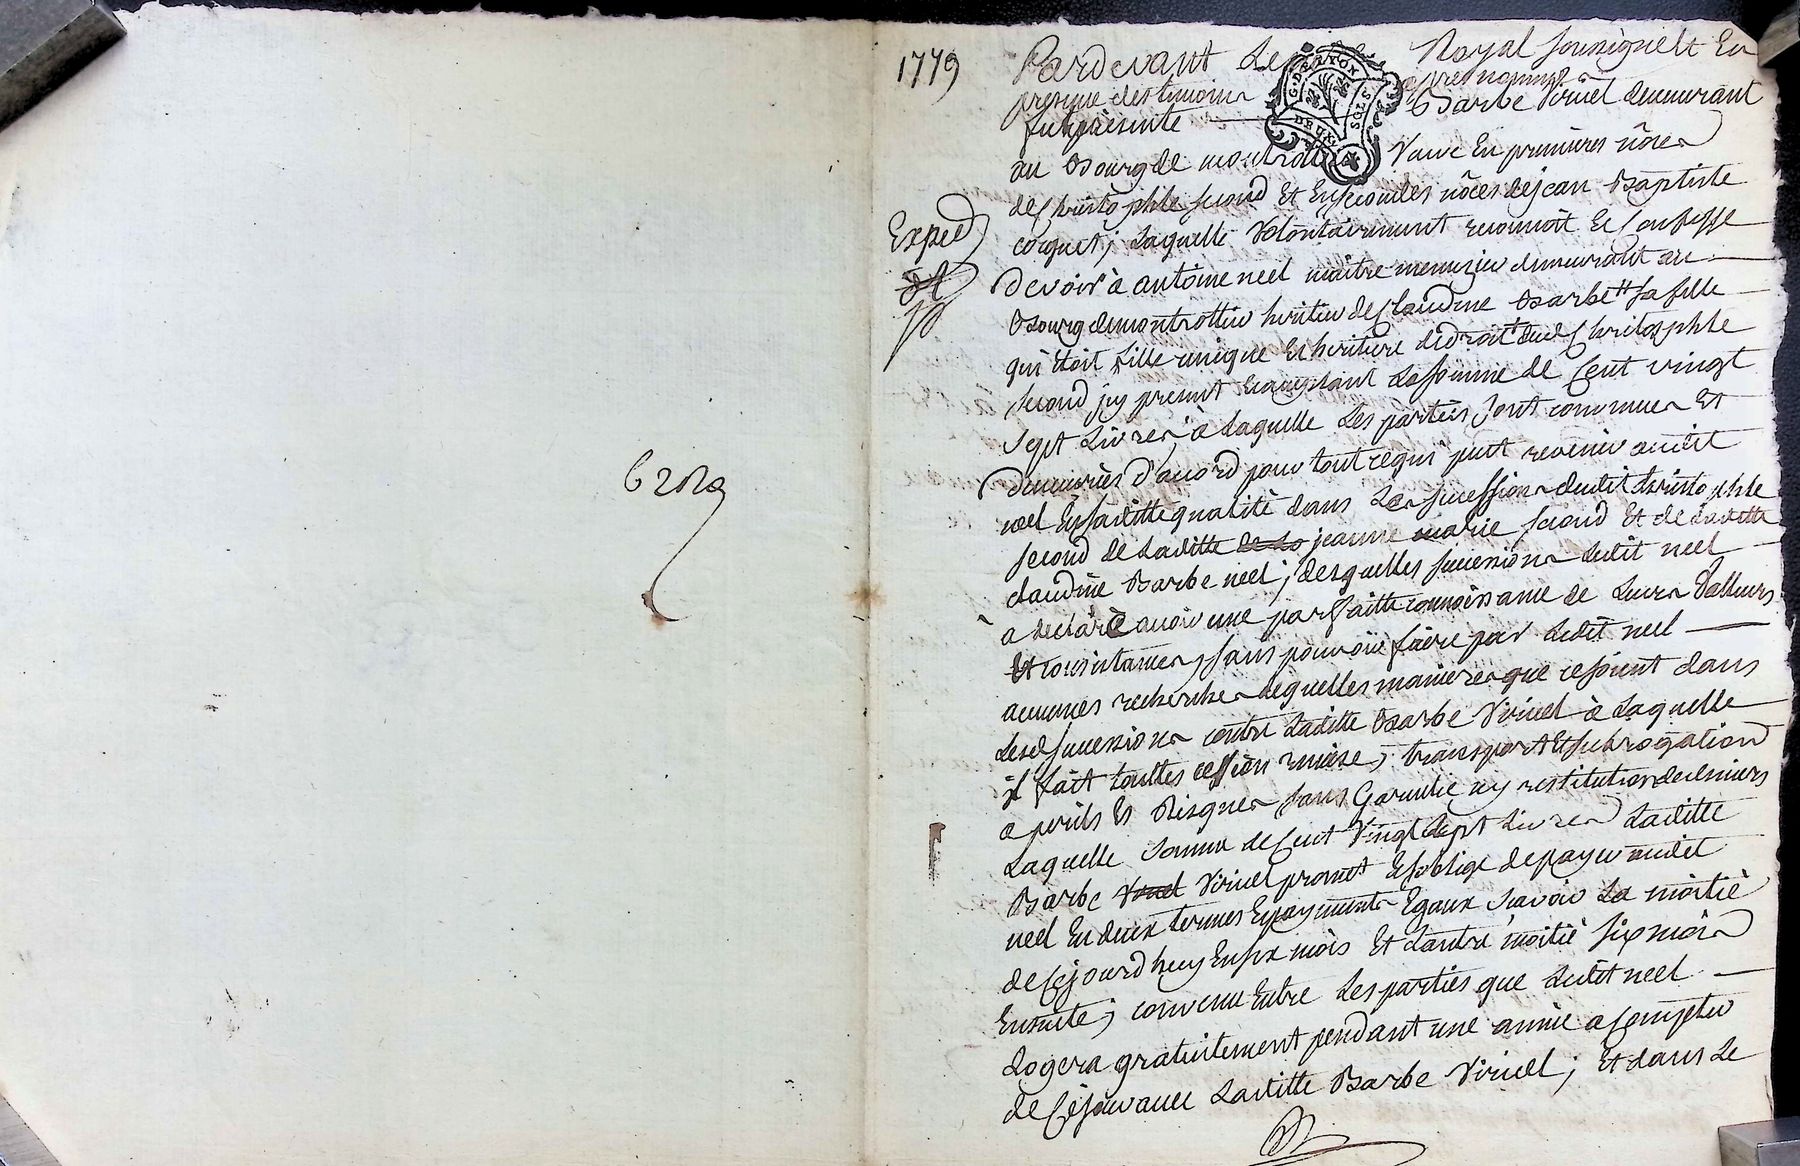 1779
Pardevant Le Royal soussigné Et En
presence des temoins apres nommés
fut presente Barbe Viriel demeurant
G. DE LYON
DEUX SOLS
au Bourg de montrottier Vauve En premieres nôces
de Christophle second Et En secondes nôces de jean Baptiste
Exped
coquet ; Laquelle Volontairement reconnoit Et Confesse
devoir à antoine neel maitre menuzier demeurant au
Bourg de montrottier heritier de Claudine Barbe sa fille
qui étoit fille unique Et heritiere de droit dud Christophle
second jcy present Acceptant La somme de Cent vingt
sept Livres, à Laquelle Les parties sont convenues Et
demeurées d'acord pour tout ce qui peut revenir audit
neel En sa ditte qualité dans Les successions dudit Christophle
second de Laditte de La jeanne marie second Et de Laditte
claudine Barbe neel ; desquelles successions Ledit neel
a declaré avoir une parfaitte connoissance de Leurs Valleurs
Et consistances, sans pouvoir faire par Ledit neel
aucunes recherches de quelles manieres que ce soient dans
Lesd successions contre Laditte Barbe Viriel à Laquelle
il fait touttes cession remise, transport Et subrogation
a perils Et Risques sans Garentie ny restitution de deniers
Laquelle somme de Cent Vingt Sept Livres Laditte
Barbe Viriel promet Et s'oblige de payer audit
neel En deux termes Et payements Egaux scavoir La moitié
de Cejourd'huy En six mois Et L'autre moitié six mois
Ensuite ; convenu Entre Les parties que Ledit neel
Logera gratuitement pendant une année a Compter
de Cejour avec Laditte Barbe Viriel ; Et dans Le